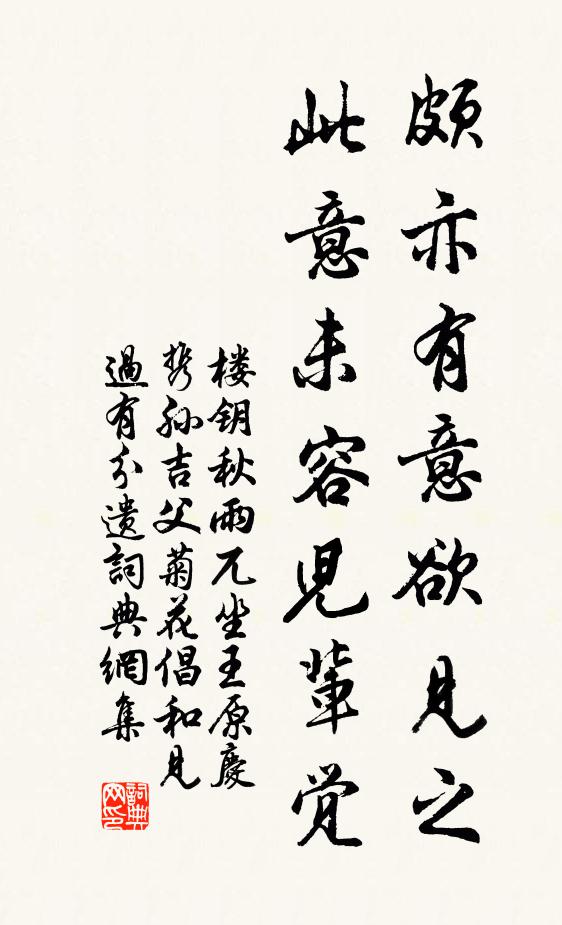 頗亦有意欲見之
此意未容児輩覚
楼钥秋雨兀坐王原慶
携孙吉父菊花倡和見
過有分遗詞典網集
詞典网印